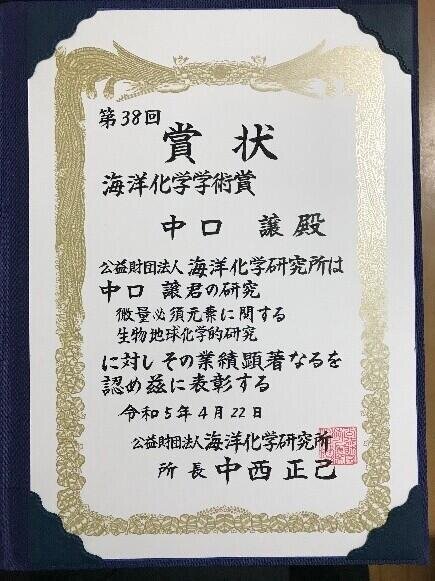 第38回
賞状
海洋化学学術賞
中口 譲 殿
公益財団法人 海洋化学研究所は
中口 譲君の研究
微量必須元素に関する
生物地球化学的研究
に対しその業績顕著なるを
認め玆に表彰する
令和5年4月22日
公益財団法人 海洋化学研究所
所長 中西正己